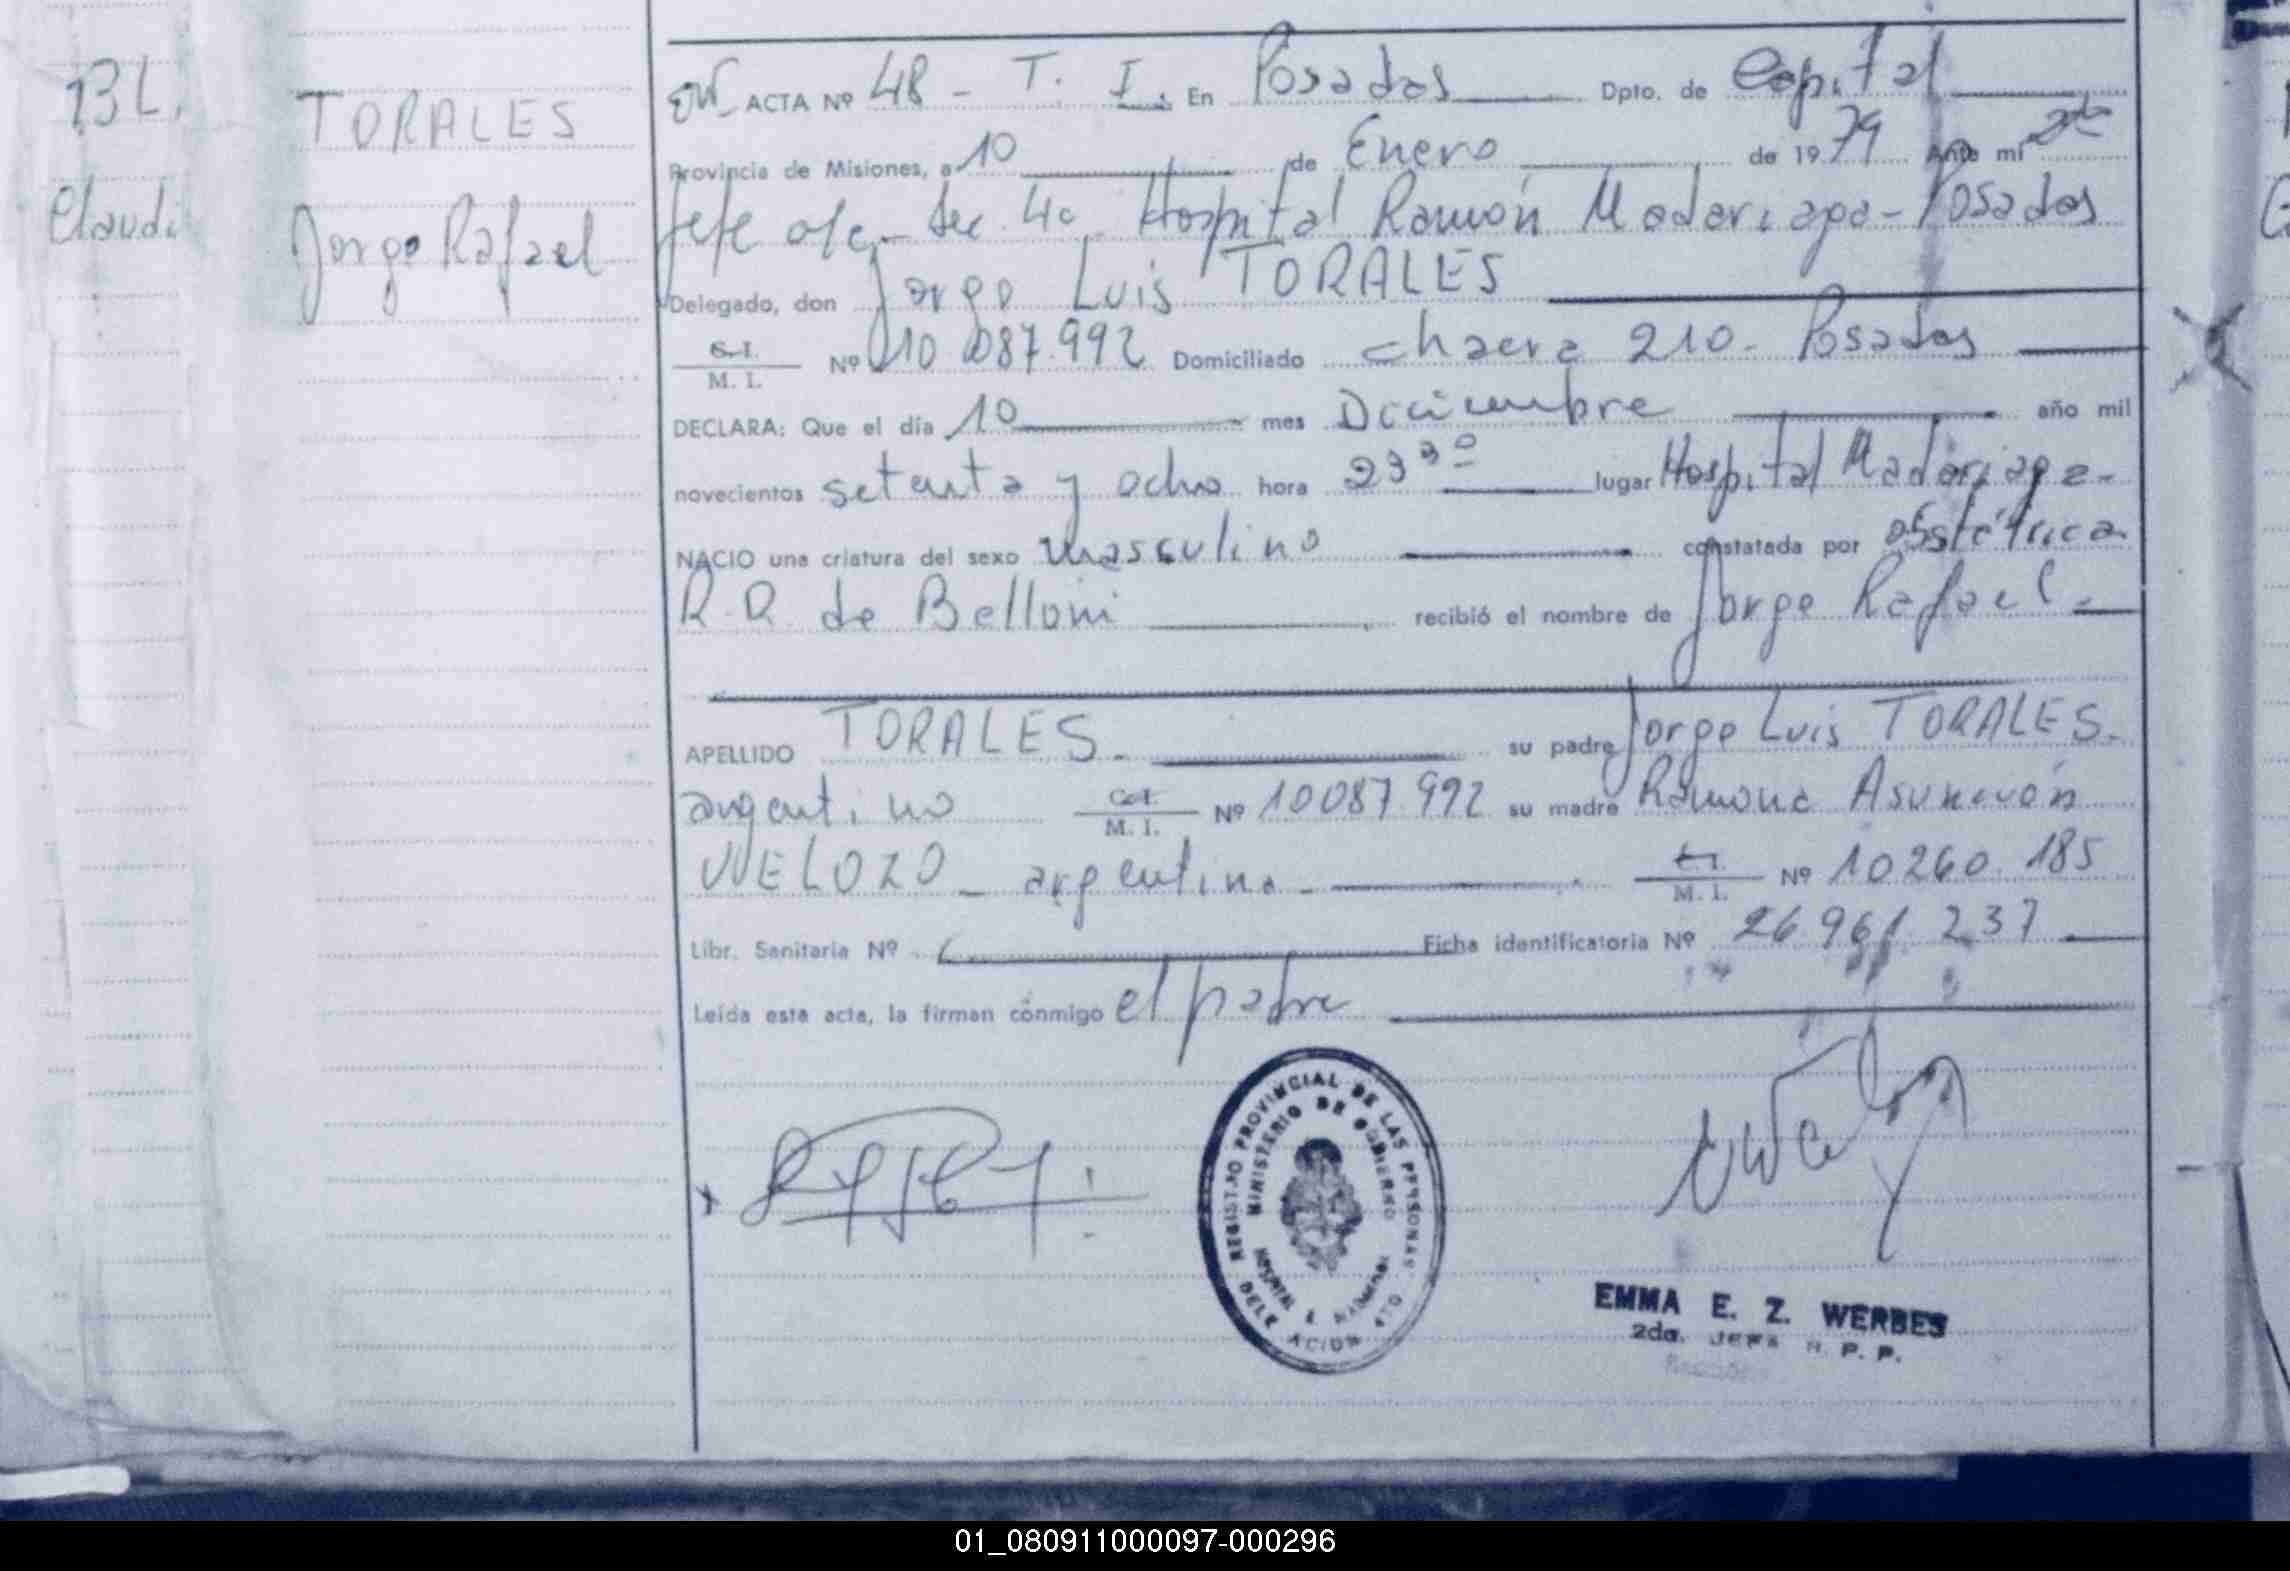 BL.
Claudi
TORALES
Jorge Rafael
ACTA Nº 48 - T. I. En Posados Dpto. de Capital
Provincia de Misiones, a 10 de Enero de 1979 Ante mi 2da
Jefe ofc. Sec. 4a Hospital Ramón Madariaga - Posadas
Delegado, don Jorge Luis TORALES
C.I. M. I. Nº 10.087.992 Domiciliado chacra 210 - Posadas
DECLARA: Que el día 10 mes Diciembre año mil
novecientos setenta y ocho hora 23 30 lugar Hospital Madariaga -
NACIO una criatura del sexo masculino constatada por obstétrica
R. R. de Belloni recibió el nombre de Jorge Rafael -
APELLIDO TORALES - su padre Jorge Luis TORALES -
argentino C.I. M. I. Nº 10087.992 su madre Ramona Asunción
VELOZO - argentina - C.I. M. I. Nº 10260.185
Libr. Sanitaria Nº Ficha identificatoria Nº 26.961.237
Leída esta acta, la firman conmigo el padre
REGISTRO PROVINCIAL DE LAS PERSONAS
MINISTERIO DE GOBIERNO
HOSPITAL R. MADARIAGA
DELEGACION 4TO
EMMA E. Z. WERBES
2da. JEFA R. P. P.
01_080911000097-000296